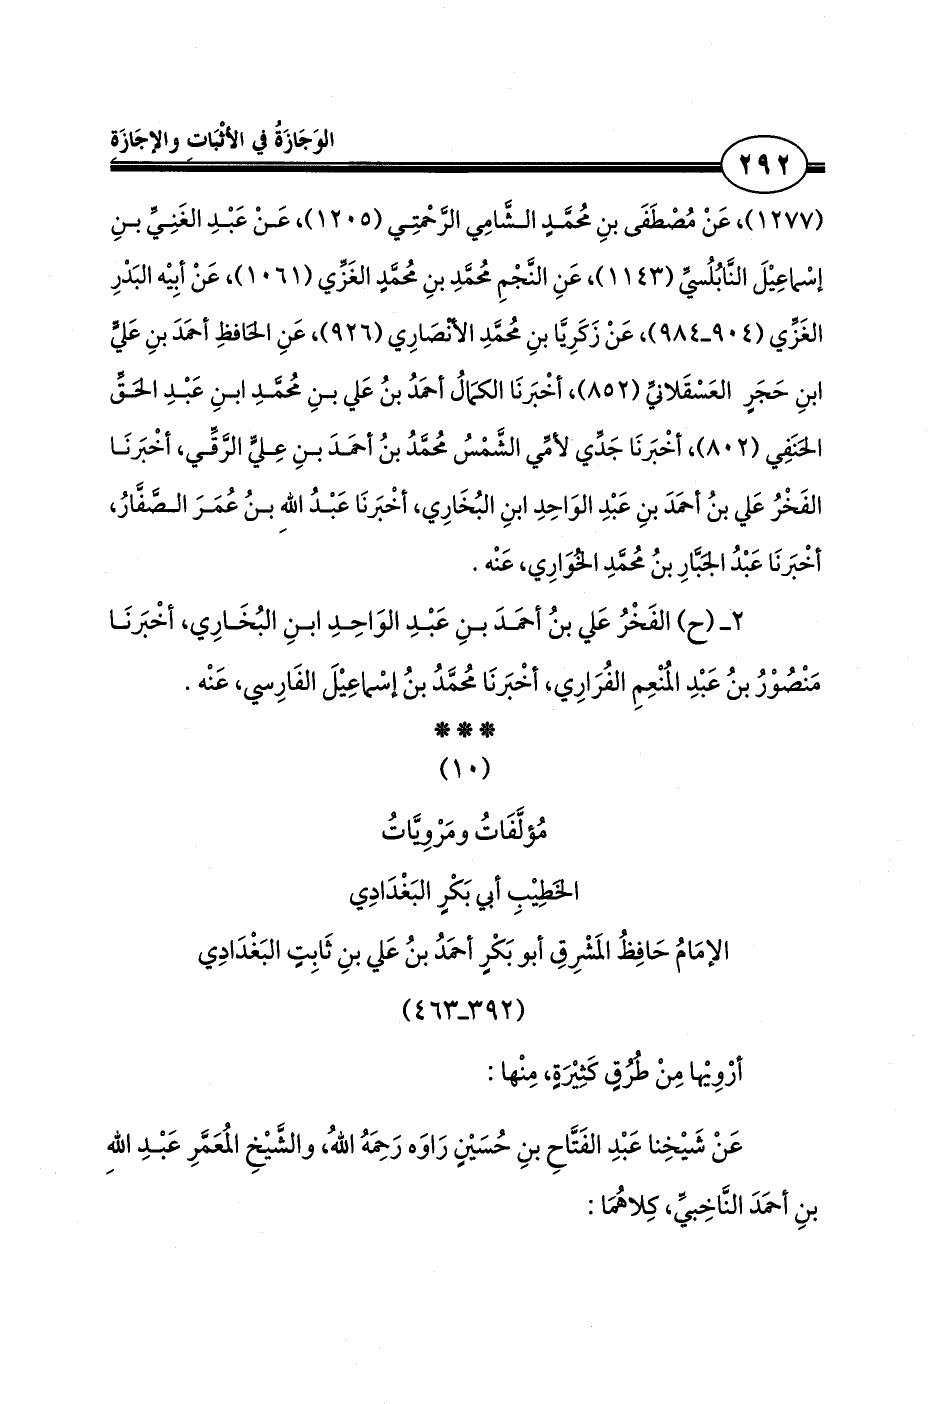 الوَجَازَةُ في الأثْبَاتِ والإجَازَةِ
٢٩٢
(١٢٧٧)، عَنْ مُصْطَفَى بنِ مُحَمَّدٍ الشَّامي الرَّحْمَتِي (١٢٠٥)، عَنْ عَبْدِ الغَنِيِّ بنِ
إسْماعِيْلَ النَّابُلْسيِّ (١١٤٣)، عَنِ النَّجْمِ مُحَمَّدِ بنِ مُحَمَّدٍ الغَزِّي (١٠٦١)، عَنْ أبِيْه البَدْرِ
الغَزِّي (٩٠٤ـ٩٨٤)، عَنْ زَكَرِيَّا بنِ مُحَمَّدِ الأنْصَارِي (٩٢٦)، عَنِ الحَافِظِ أحمَدَ بنِ عَليٍّ
ابنِ حَجَرٍ العَسْقَلانيِّ (٨٥٢)، أخْبَرَنَا الكمَالُ أحمَدُ بنُ عَلي بنِ مُحَمَّدِ ابنِ عَبْدِ الحَقِّ
الحَنَفِي (٨٠٢)، أخْبَرَنَا جَدِّي لأمِّي الشَّمْسُ مُحَمَّدُ بنُ أحمَدَ بنِ عِليٍّ الرَّقِّي، أخْبَرَنَا
الفَخْرُ عَلي بنُ أحمَدَ بنِ عَبْدِ الوَاحِدِ ابنِ البُخَاري، أخْبَرَنَا عَبْدُ اللهِ بنُ عُمَرَ الصَّفَّارُ،
أخْبَرَنَا عَبْدُ الجَبَّارِ بنُ مُحَمَّدِ الخُوَارِي، عَنْه .
٢ـ (ح) الفَخْرُ عَلي بنُ أحمَدَ بنِ عَبْدِ الوَاحِدِ ابنِ البُخَاري، أخْبَرَنَا
مَنْصُوْرُ بنُ عَبْدِ المُنْعِمِ الفُرَاري، أخْبَرَنَا مُحَمَّدُ بنُ إسْماعِيْلَ الفَارِسي، عَنْه .
* * *
(١٠)
مُؤلَّفَاتُ ومَرْوِيَّاتُ
الخَطِيْبِ أبي بَكْرٍ البَغْدَادِي
الإمَامُ حَافِظُ المَشْرِقِ أبو بَكْرٍ أحمَدُ بنُ عَلي بنِ ثَابِتٍ البَغْدَادِي
(٣٩٢ـ٤٦٣)
أرْوِيْها مِنْ طُرُقٍ كَثِيْرَةٍ، مِنْها :
عَنْ شَيْخِنا عَبْدِ الفَتَّاحِ بنِ حُسَيْنٍ رَاوَه رَحِمَهُ اللهُ، والشَّيْخِ المُعَمَّرِ عَبْدِ اللهِ
بنِ أحمَدَ النَّاخِبيِّ، كِلاهُمَا :